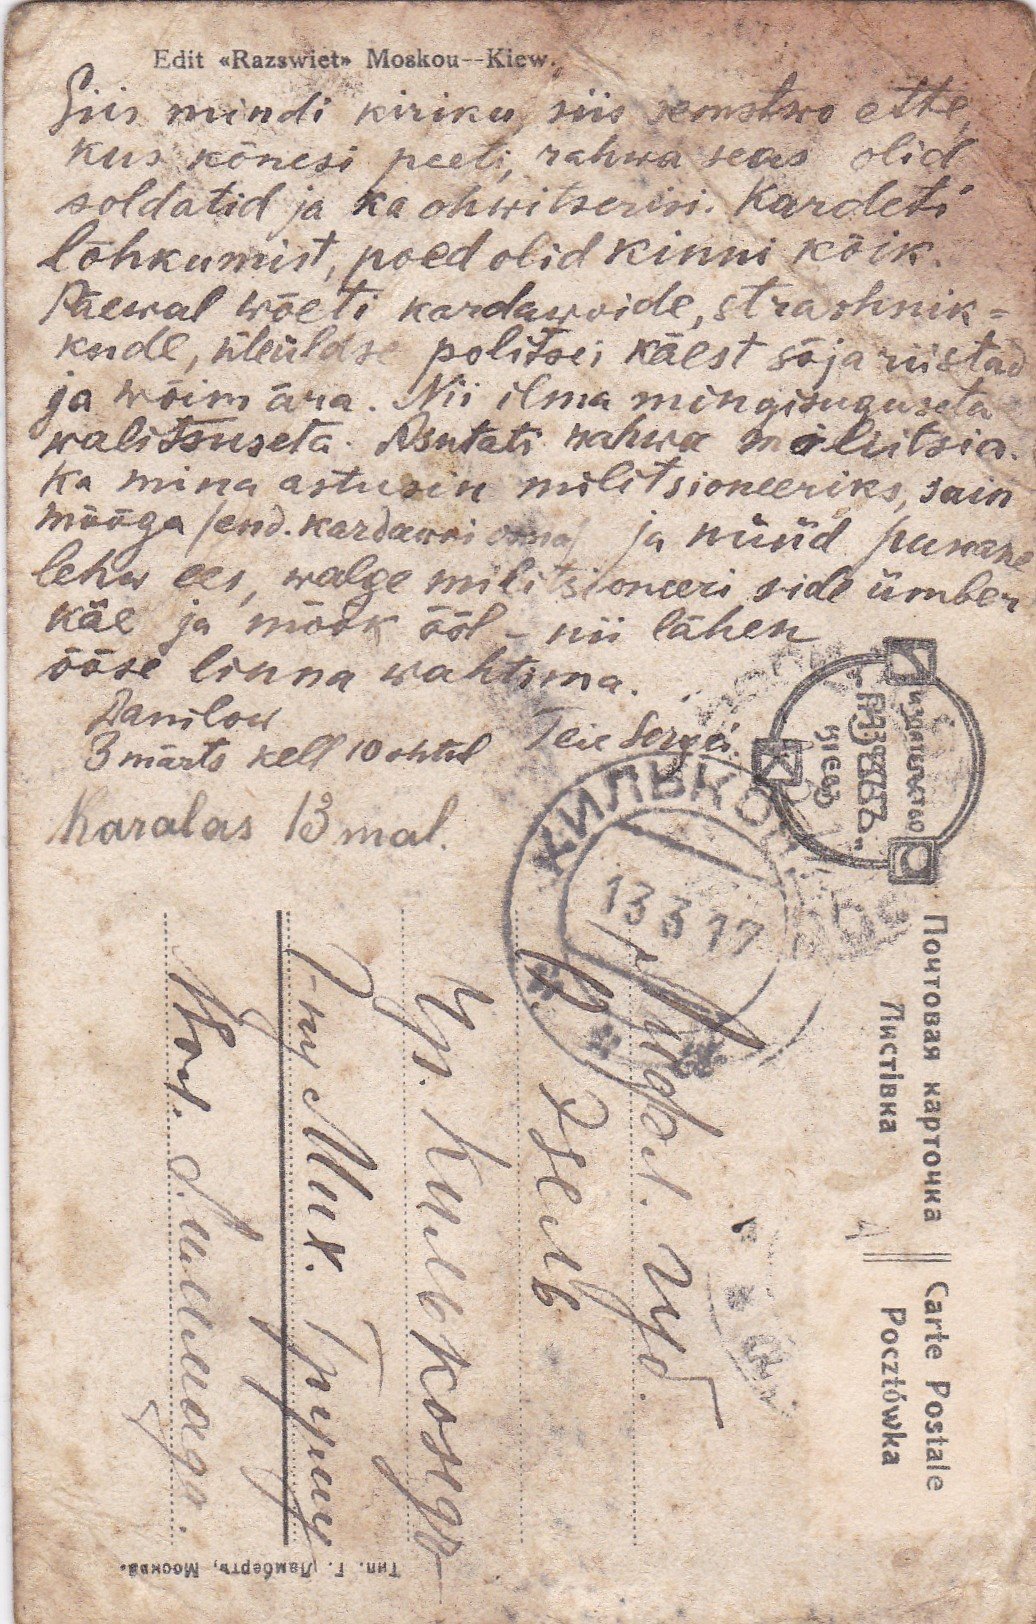 Edit «Razswiet» Moskou--Kiew.
Siis mindi kiriku, siis semstwo ette,
kus kõnesi peeti, rahwa seas olid
soldatid ja ka ohwitserisi. Kardeti
lõhkumist, poed olid kinni kõik.
Päewal wõeti kardawoide, strashnik-
kude, üleüldse politsei käest sõja riistad
ja wõim ära. Nii ilma mingisuguseta
walitsuseta. Asutati rahwa militsia.
Ka mina astusin militsioneeriks, sain
mõõga /end. kardawoi oma/ ja nüüd punane
lehw ees, walge militsioneeri side ümber
käe ja mõõk ööl - nii lähen
öösse linna wahtima.
Danilow Teie Sergei.
3 märts kell 10 õhtul
Karalas 13 mal.
ИЗДАТЕЛЬСТВО
„РАЗСВѢТЪ“
КІЕВЪ
КИЛЬКО
13 3 17
Почтовая карточка Carte Postale
Листівка Pocztówka
Лифл. губ.
О. Эзель
Чр. Кильконда
Г-ну Мих. Приму
Кол.
Тип. Г. Ламбертъ, Москва.